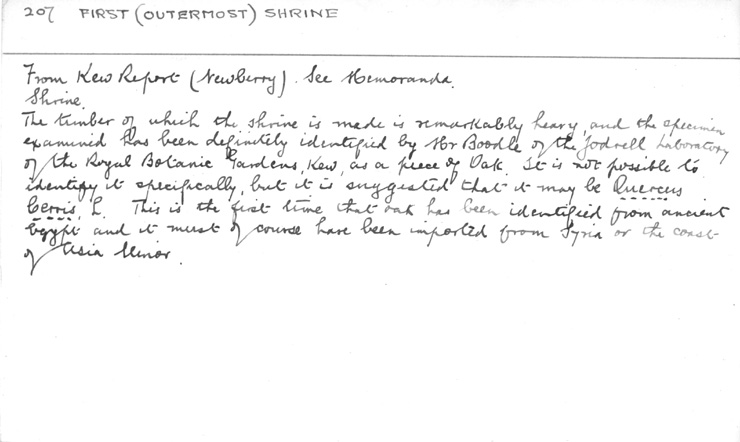 207 FIRST (OUTERMOST) SHRINE
From Kew Report (Newberry). See Memoranda.
Shrine.
The timber of which the shrine is made is remarkably heavy, and the specimen
examined has been definitely identified by Mr Boodle of the Jodrell Laboratory
of the Royal Botanic Gardens, Kew, as a piece of Oak. It is not possible to
identify it specifically, but it is suggested that it may be Quercus
Cerris, L. This is the first time that oak has been identified from ancient
Egypt and it must of course have been imported from Syria or the coast
of Asia Minor.